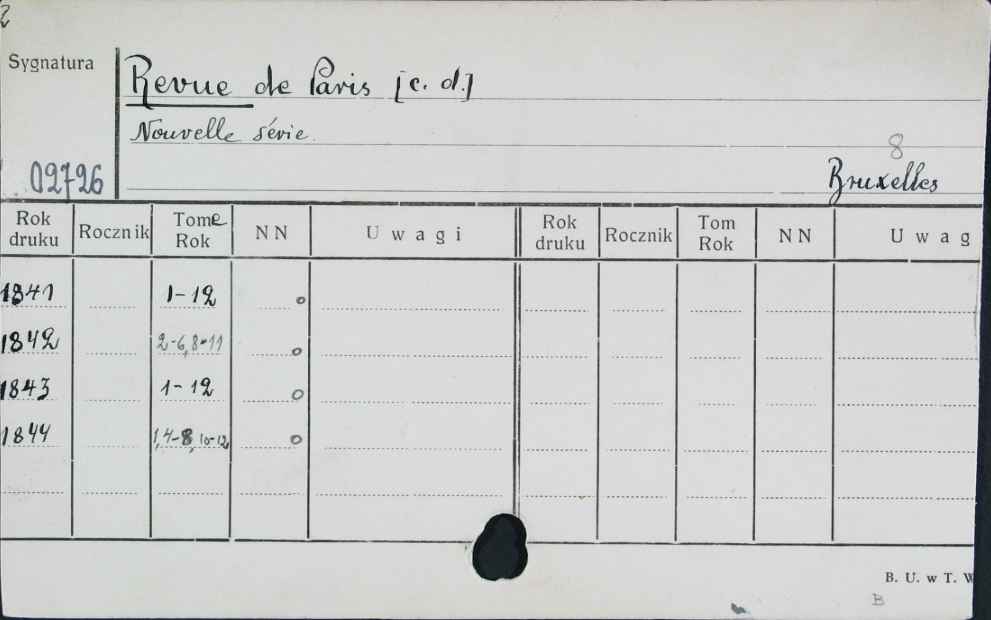 2
Sygnatura
Revue de Paris [c. d.]
Nouvelle série.
8
02726
Bruxelles
Rok druku Rocznik Tome Rok NN Uwagi Rok druku Rocznik Tom Rok NN Uwag
1841 1-12 o
1842 2-6, 8-11 o
1843 1-12 o
1844 1, 4-8, 10-12 o
B. U. w T. W
B